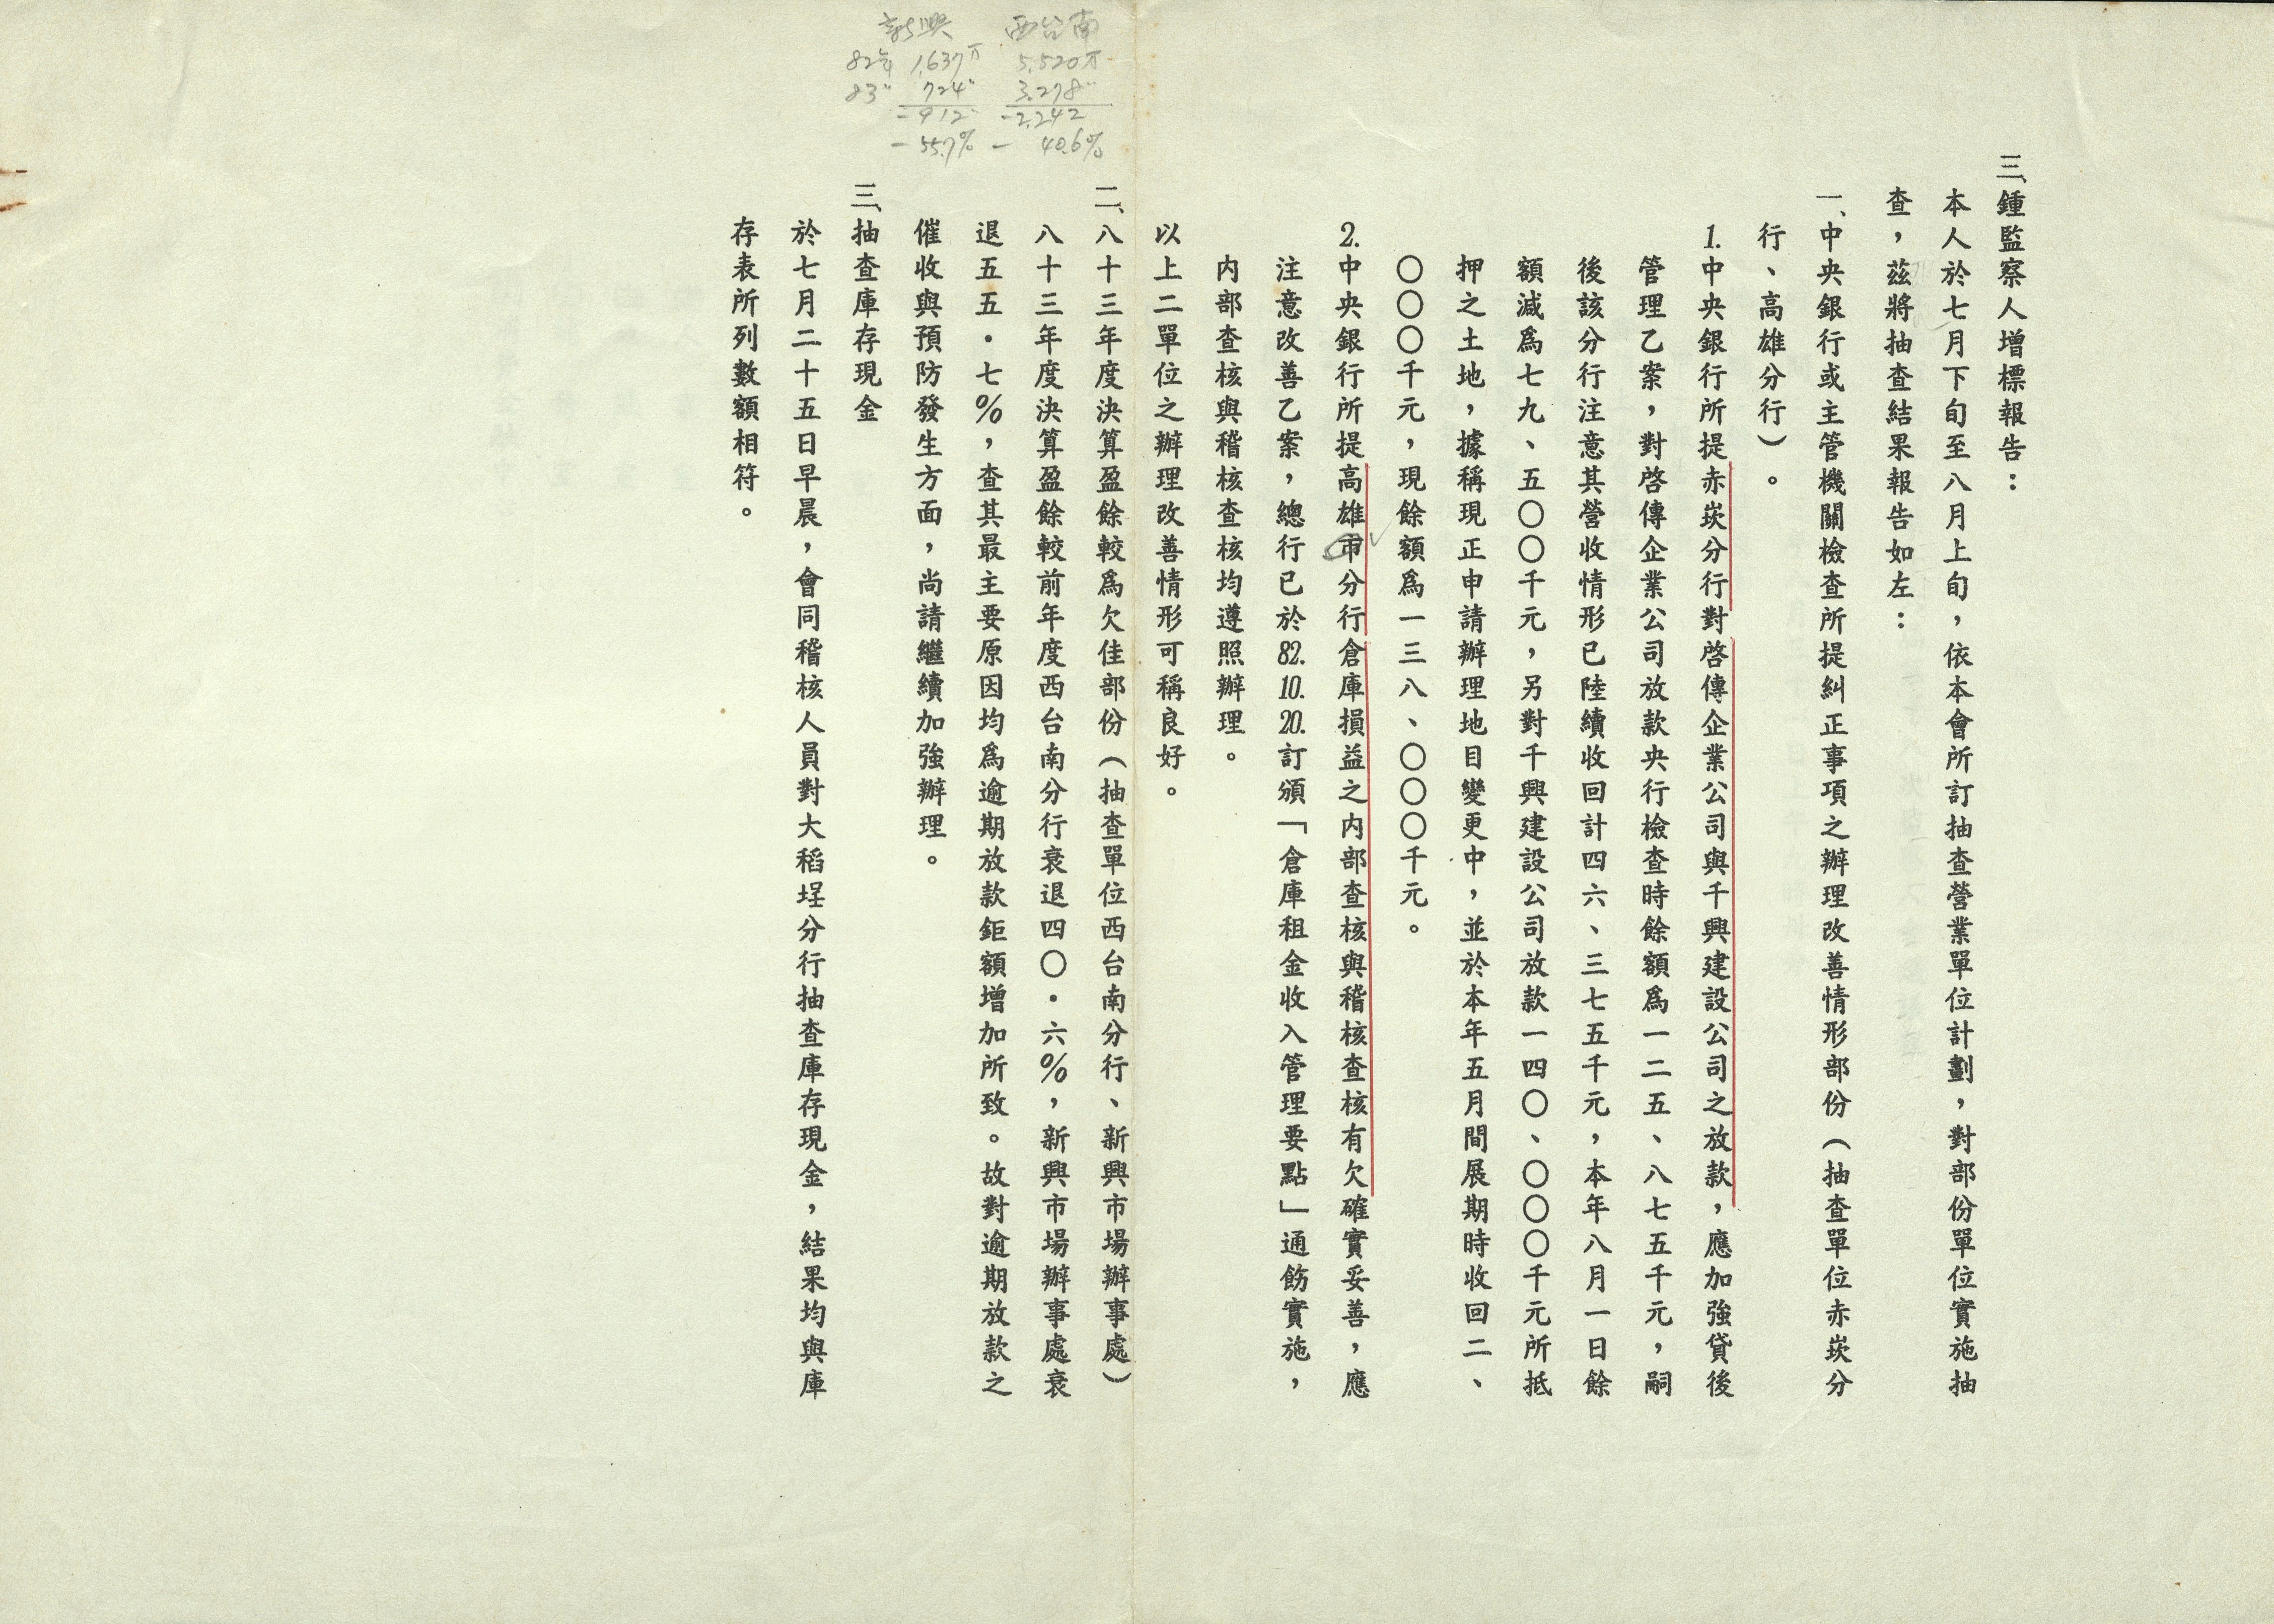 三、鍾監察人增標報告：
本人於七月下旬至八月上旬，依本會所訂抽查營業單位計劃，對部份單位實施抽
查，茲將抽查結果報告如左：
一、中央銀行或主管機關檢查所提糾正事項之辦理改善情形部份（抽查單位赤崁分
行、高雄分行）。
1.中央銀行所提赤崁分行對啓傳企業公司與千興建設公司之放款，應加強貸後
管理乙案，對啓傳企業公司放款央行檢查時餘額爲一二五、八七五千元，嗣
後該分行注意其營收情形已陸續收回計四六、三七五千元，本年八月一日餘
額減爲七九、五〇〇千元，另對千興建設公司放款一四〇、〇〇〇千元所抵
押之土地，據稱現正申請辦理地目變更中，並於本年五月間展期時收回二、
〇〇〇千元，現餘額爲一三八、〇〇〇千元。
2.中央銀行所提高雄市分行倉庫損益之內部查核與稽核查核有欠確實妥善，應
注意改善乙案，總行已於82.10.20.訂頒「倉庫租金收入管理要點」通飭實施，
內部查核與稽核查核均遵照辦理。
以上二單位之辦理改善情形可稱良好。
二、八十三年度決算盈餘較爲欠佳部份（抽查單位西台南分行、新興市場辦事處）
八十三年度決算盈餘較前年度西台南分行衰退四〇．六%，新興市場辦事處衰
退五五．七%，查其最主要原因均爲逾期放款鉅額增加所致。故對逾期放款之
催收與預防發生方面，尚請繼續加強辦理。
三、抽查庫存現金
於七月二十五日早晨，會同稽核人員對大稻埕分行抽查庫存現金，結果均與庫
存表所列數額相符。
新興 西台南
82年 1,637万 5,520万
83〃 724〃 3,278〃
-912 -2,242
-55.7% - 40.6%